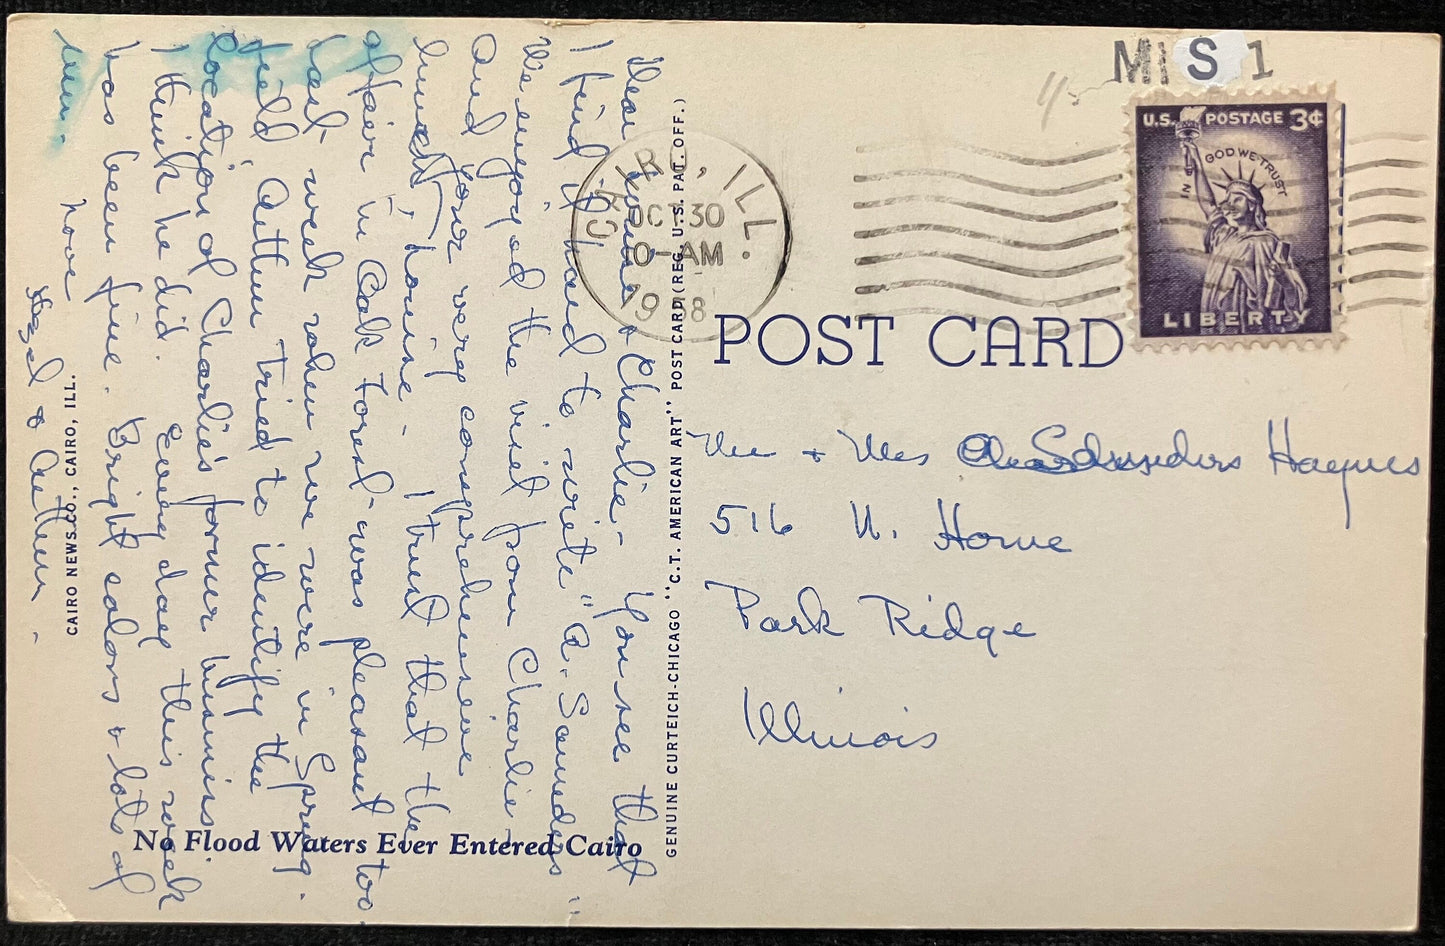 MIS 1
U.S. POSTAGE 3¢
IN GOD WE TRUST
LIBERTY
CAIRO, ILL.
OCT 30
0-AM
1958
POST CARD
Mr + Mrs Saunders Haynes
516 N. Home
Park Ridge
Illinois
GENUINE CURTEICH-CHICAGO "C.T. AMERICAN ART" POST CARD (REG. U.S. PAT. OFF.)
Dear Louise & Charlie - You see that
I find it hard to write "A. Saunders"
We enjoyed the visit from Charlie
and your very comprehensive
, Louise. I trust that the
affair in Oak Forest was pleasant too.
Last week when we were in Spring-
field Arthur tried to identify the
location of Charlie's former business
I think he did. Every day this week
has been fine. Bright colors & lots of
sun.
Love
Hazel & Arthur.
CAIRO NEWS CO., CAIRO, ILL.
No Flood Waters Ever Entered Cairo